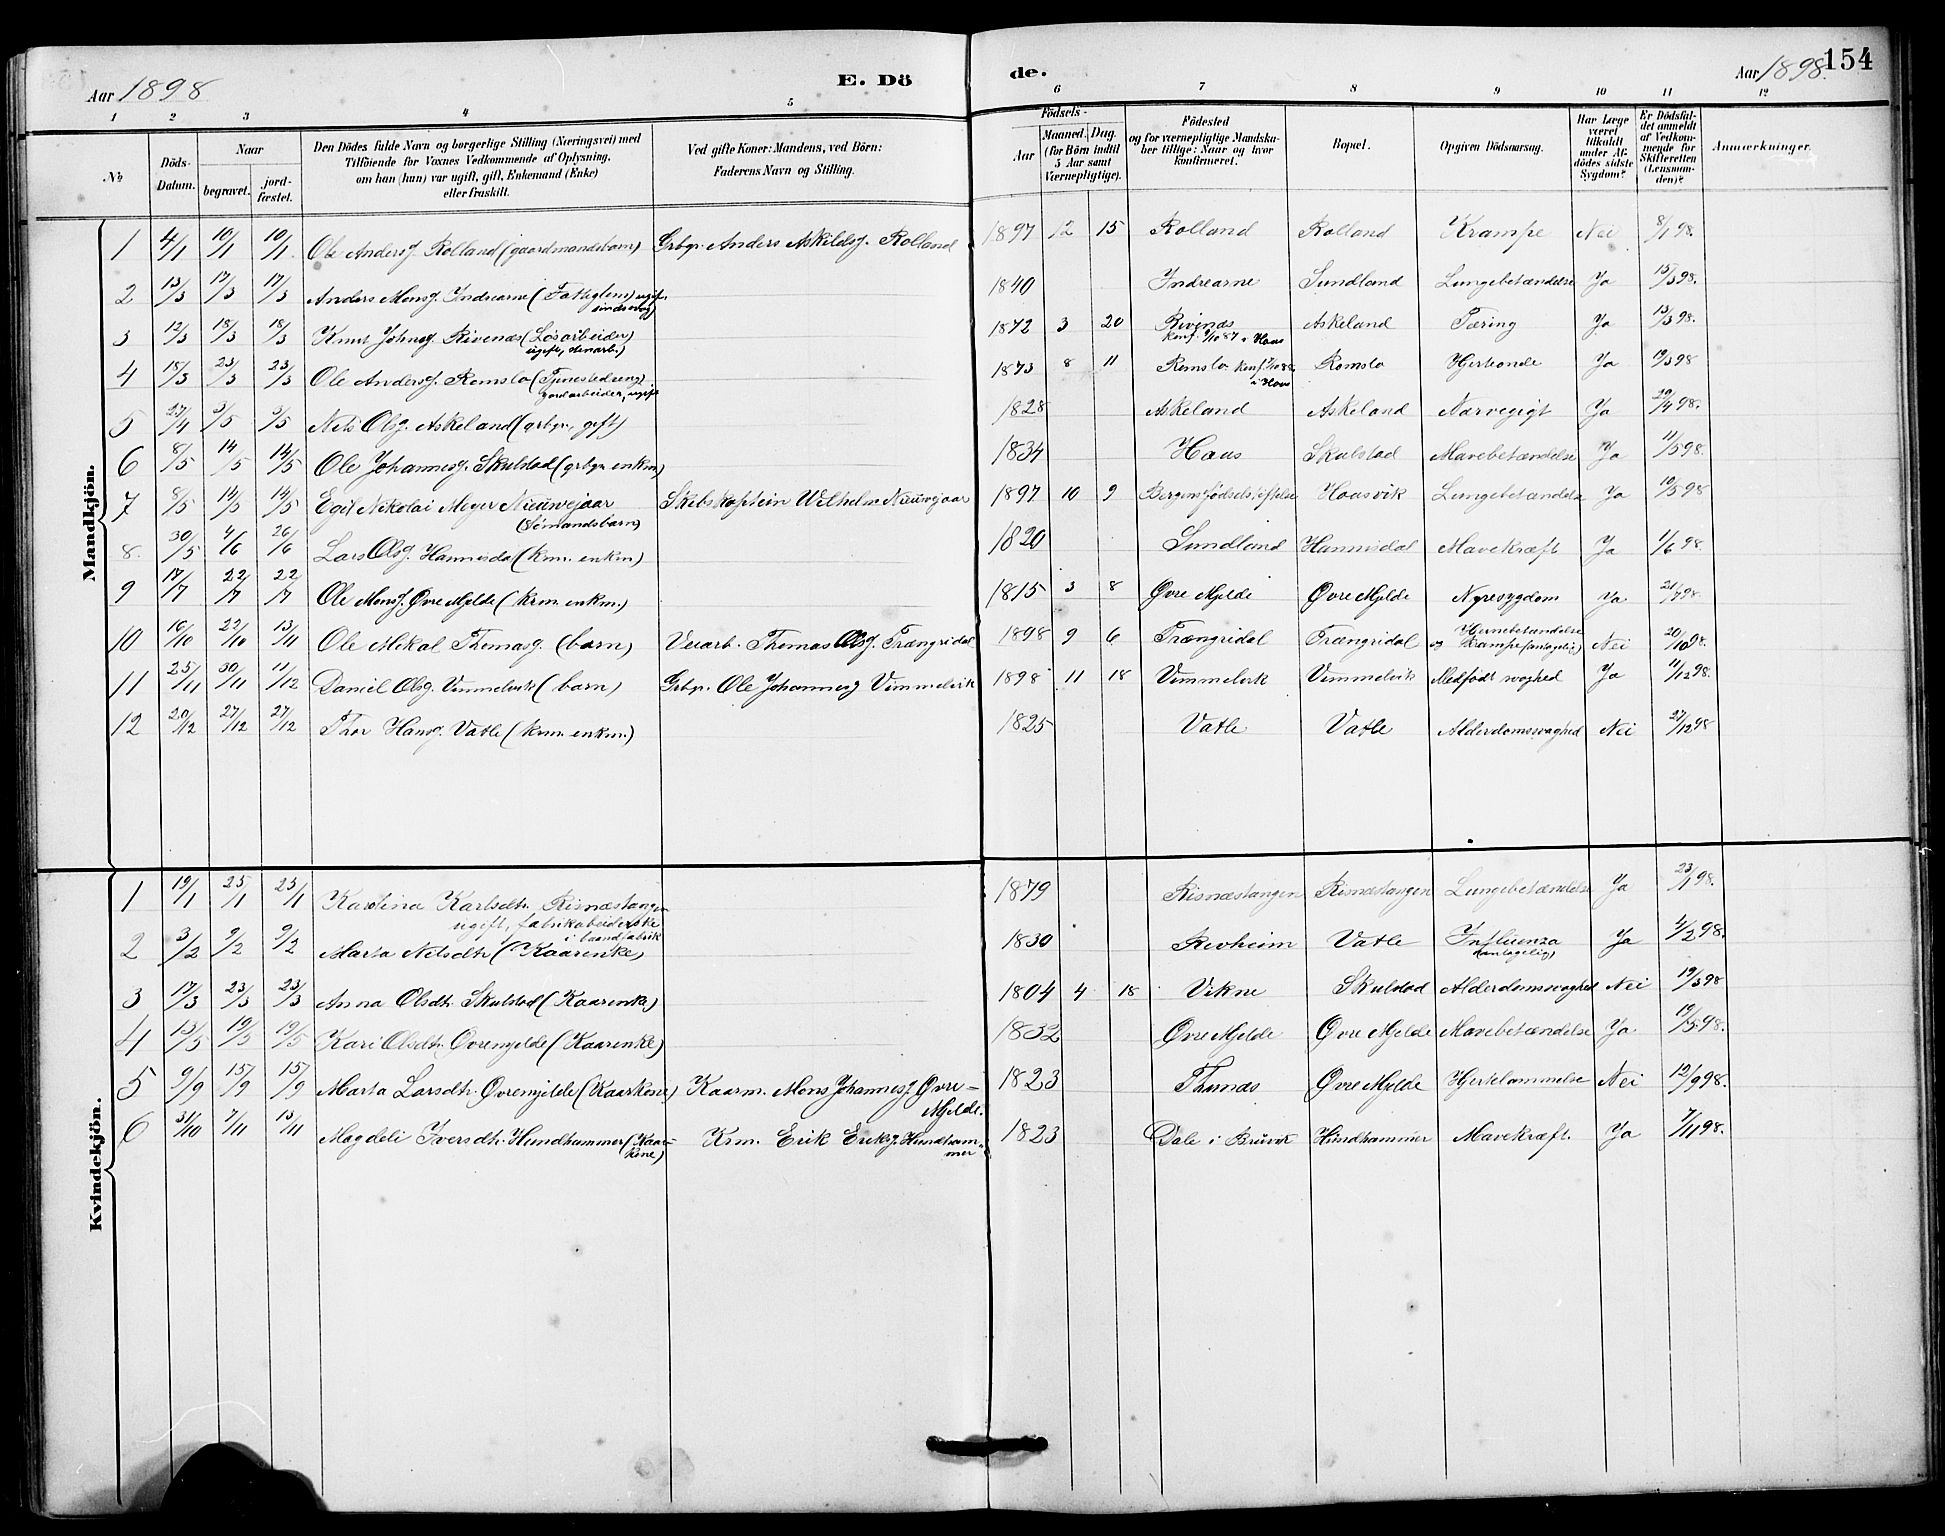 Aar 1898 E. Dö de. Aar 1898. 154
1 2 3 4 5 6 7 8 9 10 11 12
№
Döds-Datum.
Naar
begravet. jordfæstet.
Den Dödes fulde Navn og borgerlige Stilling (Næringsvei) med
Tilföiende for Voxnes Vedkommende af Oplysning,
om han (hun) var ugift, gift, Enkemand (Enke)
eller fraskilt.
Ved gifte Koner: Mandens, ved Börn:
Faderens Navn og Stilling.
Födsels-
Aar Maaned. Dag.
(for Börn indtil
5 Aar samt
Værnepligtige).
Födested
og for værnepligtige Mandskaber tillige: Naar og hvor
konfirmeret.
Bopæl.
Opgiven Dödsaarsag.
Har Læge
været
tilkaldt
under Afdödes sidste
Sygdom?
Er Dödsfaldet anmeldt
af Vedkommende for
Skifteretten
(Lensmanden)?
Anmærkninger.
Mandkjön.
1 4/1 10/1 10/1 Ole Andersg. Rolland (gaardmandsbarn) Grbgr. Anders Askildsg. Rolland 1897 12 15 Rolland Rolland Krampe Nei 8/1 98.
2 13/3 17/3 17/3 Anders Monsg. Indrearne ( ugift, sindssvag) 1840 Indrearne Sundland Lungebetændelse Ja 15/3 98.
3 12/3 18/3 18/3 Knut Johnsg. Rivenæs (Løsarbeider) ugift, 1872 3 20 Rivenæs Askeland Tæring Ja 13/3 98.
konf. 87 i Haus
4 18/3 23/3 23/3 Ole Andersg. Romslo ( jordarbeider, ugift 1873 8 11 Romslo konf. 88 i Haus Romslo Hjerteonde Ja 19/3 98
5 27/4 3/5 3/5 Nels Olsg. Askeland (grbgr., gift) 1828 Askeland Askeland Nervegigt Ja 29/4 98.
6 8/5 14/5 14/5 Ole Johannesg. Skulstad (grbgr. enkm) 1834 Haus Skulstad Mavebetændelse Ja 11/5 98.
7 8/5 14/5 14/5 Egil Nikolai Meyer Nieuwejaar Skibskaptein Wilhelm Nieuwejaar 1897 10 9 Bergens fødselsstiftelse Haasvik Lungebetændelse Ja 10/5 98
(Sömandsbarn)
8. 30/5 4/6 26/6 Lars Olsg. Hannisdal (krm. enkm) 1820 Sundland Hannisdal Mavekræft Ja 1/6 98.
9 17/7 22/7 22/7 Ole Monsg. Øvre Mjelde (krm. enkm.) 1815 3 8 Øvre Mjelde Øvre Mjelde Nyresygdom Ja 21/7 98.
10 16/10 22/10 13/11 Ole Mikal Thomasg. (barn) Veiarb. Thomas Olsg. Trængridal 1898 9 6 Trængridal Trængridal Hjernebetændelse og Krampe (antagelig) Nei 20/10 98.
11 25/11 30/11 11/12 Daniel Olsg. Vimmelvik (barn) Grbgr. Ole Johannesg Vimmelvik 1898 11 18 Vimmelvik Vimmelvik Medfødt svaghed Ja 11/12 98.
12 20/12 27/12 27/12 Thor Hansg. Vatle (krm. enkm.) 1825 Vatle Vatle Alderdomssvaghed Nei 27/12 98
Kvindekjön.
1 19/1 25/1 25/1 Karolina Karlsdtr. Risnæstangen 1879 Risnæstangen Risnæstangen Lungebetændelse Ja 23/1 98.
ugift, fabrikabeiderske
i baandfabrik
2 3/2 9/2 9/2 Marta Nelsdtr. (Kaarenke) 1830 Revheim Vatle Influenza (antagelig) Ja 4/2 98.
3 17/3 23/3 23/3 Anna Olsdtr. Skulstad (Kaarenke) 1804 4 18 Vikne Skulstad Alderdomssvaghed Nei 19/3 98
4 13/5 19/5 19/5 Kari Olsdtr. Øvremjelde (Kaarenke) 1832 Øvre Mjelde Øvre Mjelde Mavebetændelse Ja 19/5 98.
5 9/9 15/9 15/9 Marta Larsdtr. Øvremjelde (Kaarkone) Kaarm. Mons Johannesg. Øvre-Mjelde. 1823 Thunæs Øvre Mjelde Hjertelammelse Nei 12/9 98.
6 31/10 7/11 13/11 Magdeli Iversdtr. Hundhammer (Kaarkone) Krm. Erik Eriksg Hundhammer 1823 Dale i Bruvik Hundhammer Mavekræft. Ja 7/11 98.